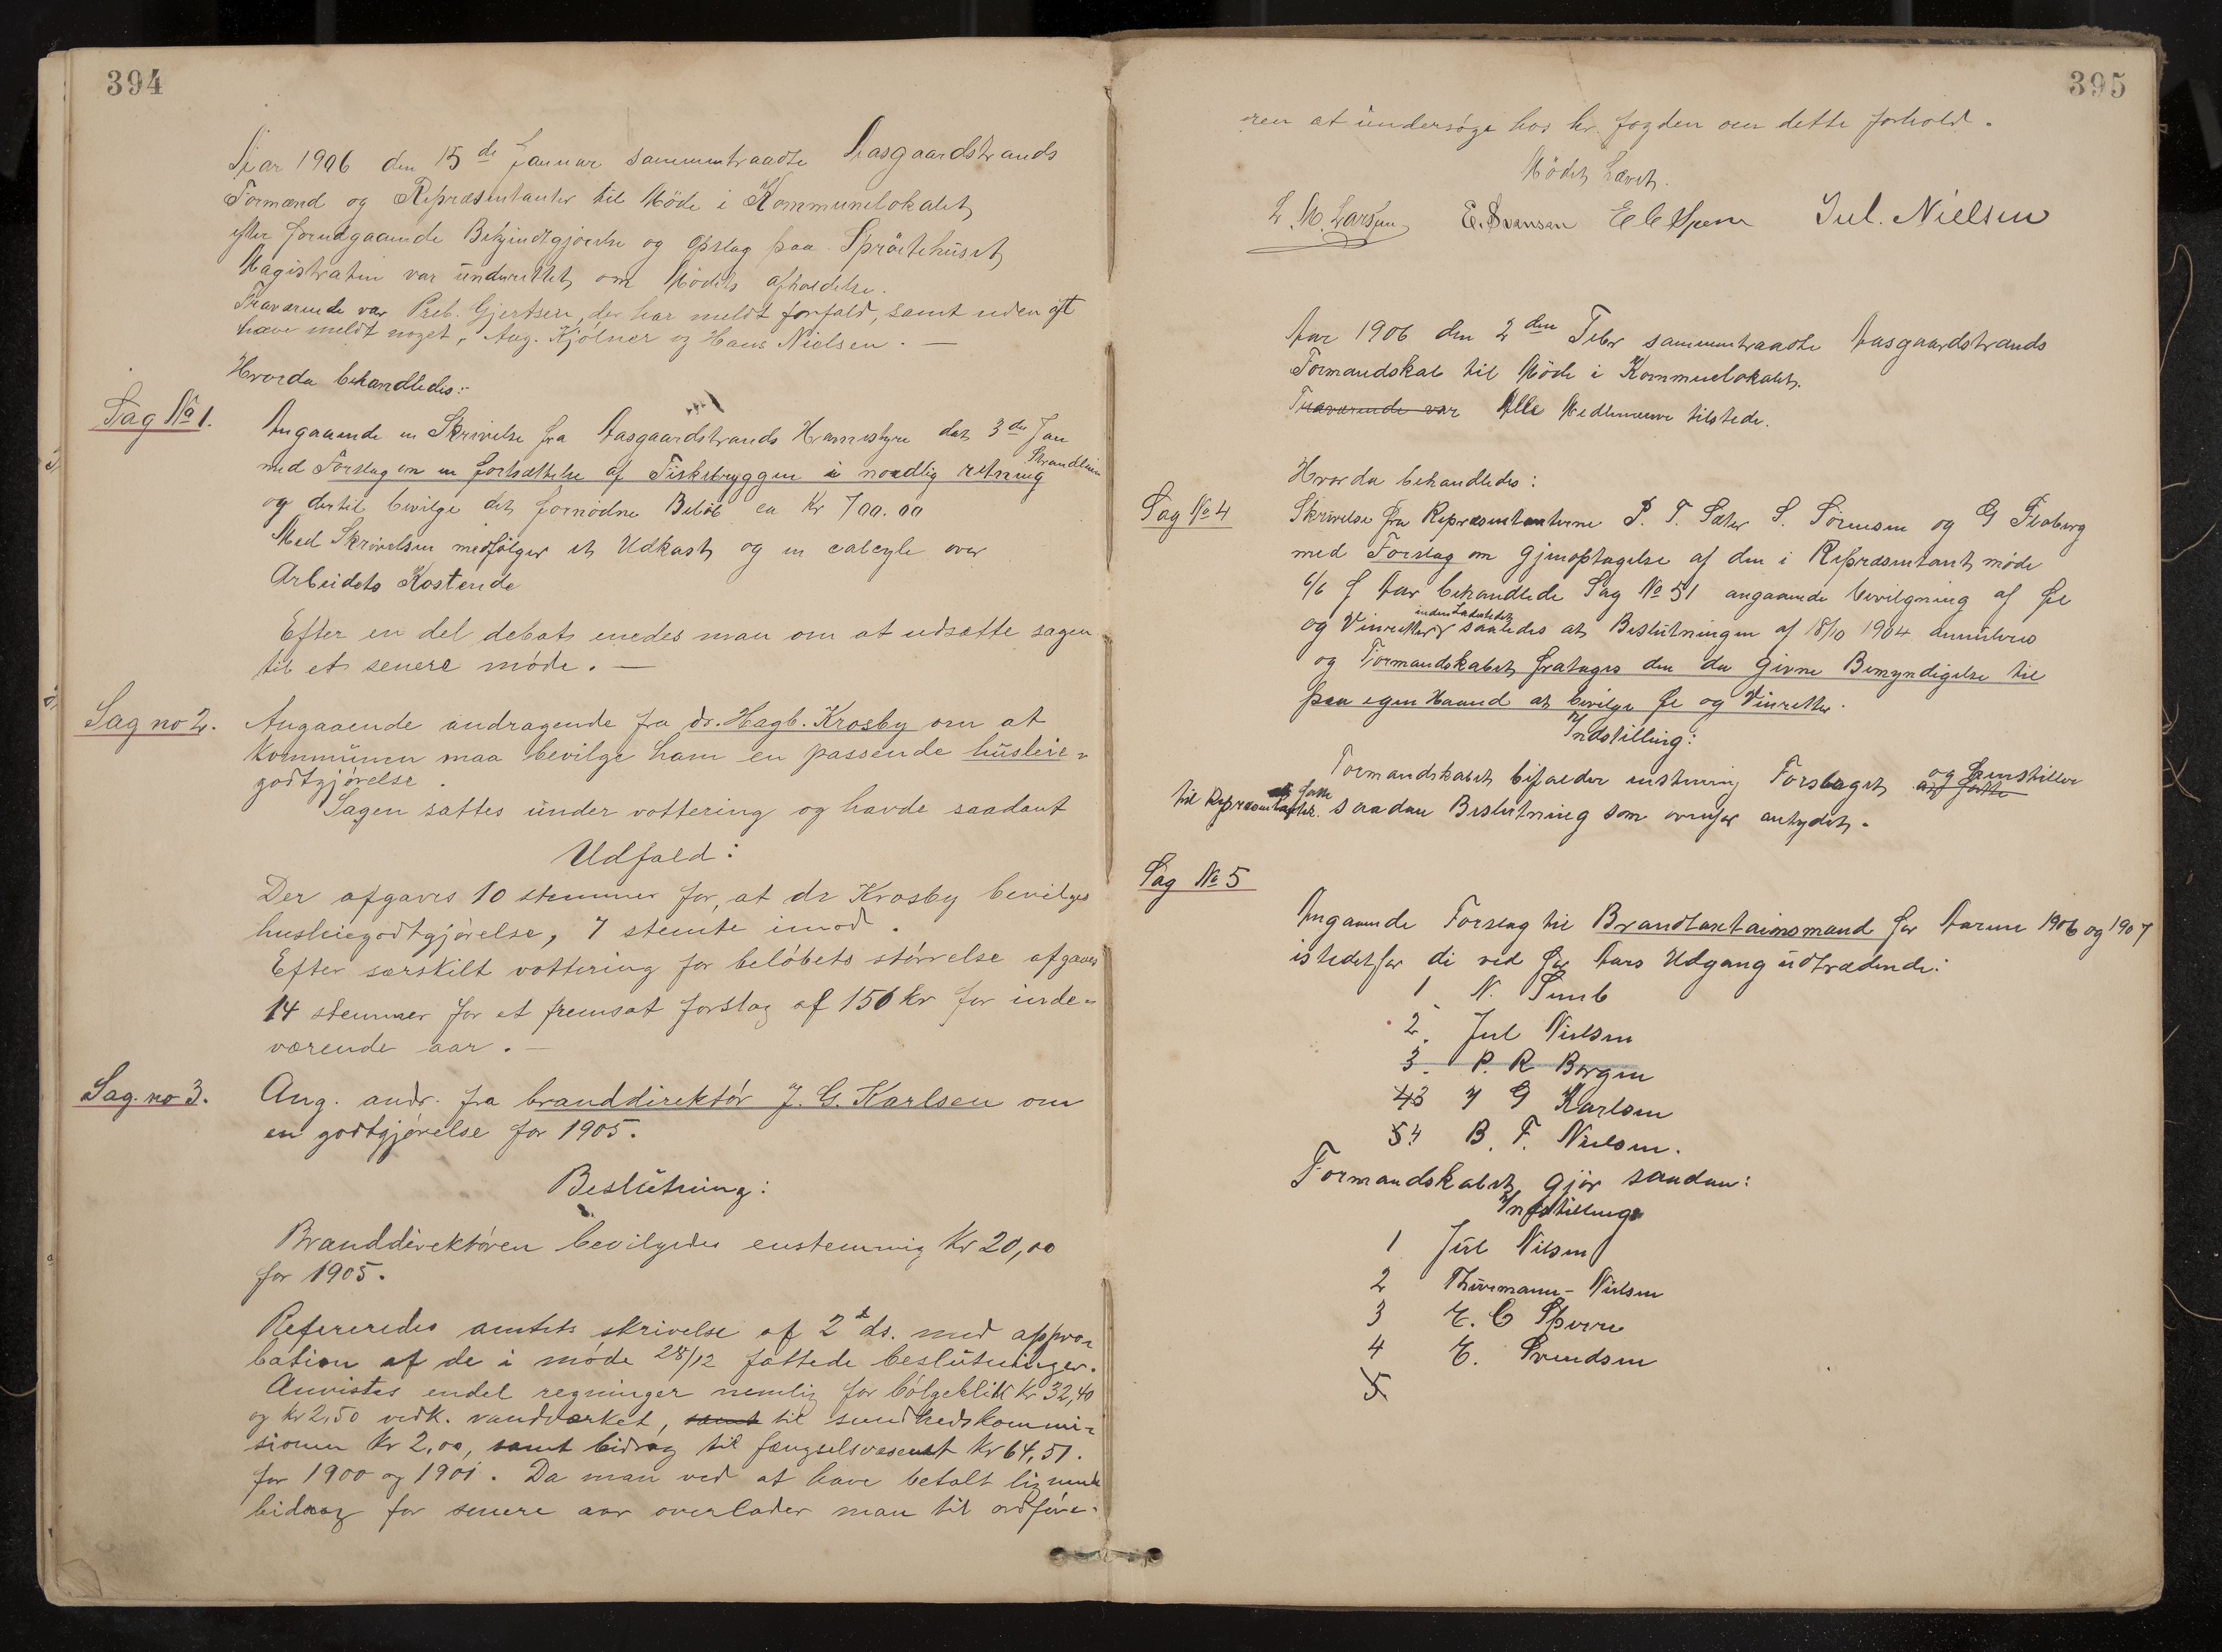 394
Aar 1906 den 15de Januar sammentraadte Aasgaardstrands
Formænd og Repræsentanter til Möde i Kommunelokalet
efter forudgaaende Bekjendtgjörelse og Opslag paa Spröitehuset
Magistraten var underrettet om Mödets afholdelse.
Fraværende var Preb. Gjertsen, der har meldt forfald, samt uden at
have meldt noget, Aug. Kjølner og Hans Nielsen. —
Hvorda behandledes:
Sag No 1.
Angaaende en Skrivelse fra Aasgaardstrands Havnestyre dat 3die Jan
med Forslag om en fortsættelse af Fiskebryggen i nordlig retning
og dertil bevilge det fornödne Belöb ca Kr 700.00
Med Skrivelsen medfölger et Udkast og en calcyle over
Arbeidets Kostende
Efter en del debat enedes man om at udsætte sagen
til et senere møde. —
Sag no 2.
Angaaende andragende fra dr. Hagb. Krosby om at
kommunen maa bevilge ham en passende husleie-
godtgjørelse.
Sagen sattes under vottering og havde saadant
Udfald:
Der afgaves 10 stemmer for, at dr Krosby bevilges
husleiegodtgjørelse, 7 stemte imod.
Efter særskilt vottering for beløbets størrelse afgaves
14 stemmer for et fremsat forslag af 150 kr for inde-
værende aar. —
Sag. no 3.
Ang. andr. fra branddirektør J. G. Karlsen om
en godtgjørelse for 1905.
Beslutning:
Branddirektøren bevilgedes enstemmig Kr 20,00
for 1905.
Refereredes amtets skrivelse af 2 ds. med appro-
bation af de i møde 28/12 fattede beslutninger.
Anvistes endel regninger nemlig for bølgeblik Kr 32,40
og kr 2,50 vedk. vandværket, samt til sundhedskommi-
sionen Kr 2,00, samt bidrag til fængselsvæsenet Kr 64,51.
for 1900 og 1901. Da man ved at have betalt lignende
bidrag for senere aar overlader man til ordføre-
395
ren at undersøge hos hr. fogden om dette forhold.
Mödet hævet.
L. M. Larsen E. Svensen E C Spern Jul. Nielsen
Aar 1906 den 2den Febr sammentraadte Aasgaardstrands
Formandskab til Möde i Kommunelokalet.
Fraværende var Alle Medlemmerne tilstede.
Hvorda behandledes:
Sag No 4
Skrivelse fra Repræsentanterne P. T. Sæter S. Sörensen og G Floberg
med Forslag om Gjenoptagelse af den i Repræsentant möde
6/6 f Aar behandlede Sag No 51 angaaende bevilgning af Öl
inden Ladestedet
og Vinretter saaledes at Beslutningen af 18/10 1904 annuleres
og Formandskabet fratages den da givne Bemyndigelse til
paa egen Haand at bevilge Öl og Vinretter.
Indstilling:
Formandskabet bifalder enstemmig Forslaget og henstiller
til Repræsentanter at fatte saadan Beslutning som ovenfor antydet.
Sag No 5
Angaaende Forslag til Brandtaxtationsmænd for Aarene 1906 og 1907
istedetfor de ved för Aars Udgang udtrædende:
1 N. Sunb
2. Jul Nielsen
3. P. R Borgen
43 J G Karlsen
54 B. F. Nielsen.
Formandskabet gjör saadan:
Indstilling
1 Jul Nilsen
2 Thurmann-Nielsen
3 E. C
4 E. Svendsen
5